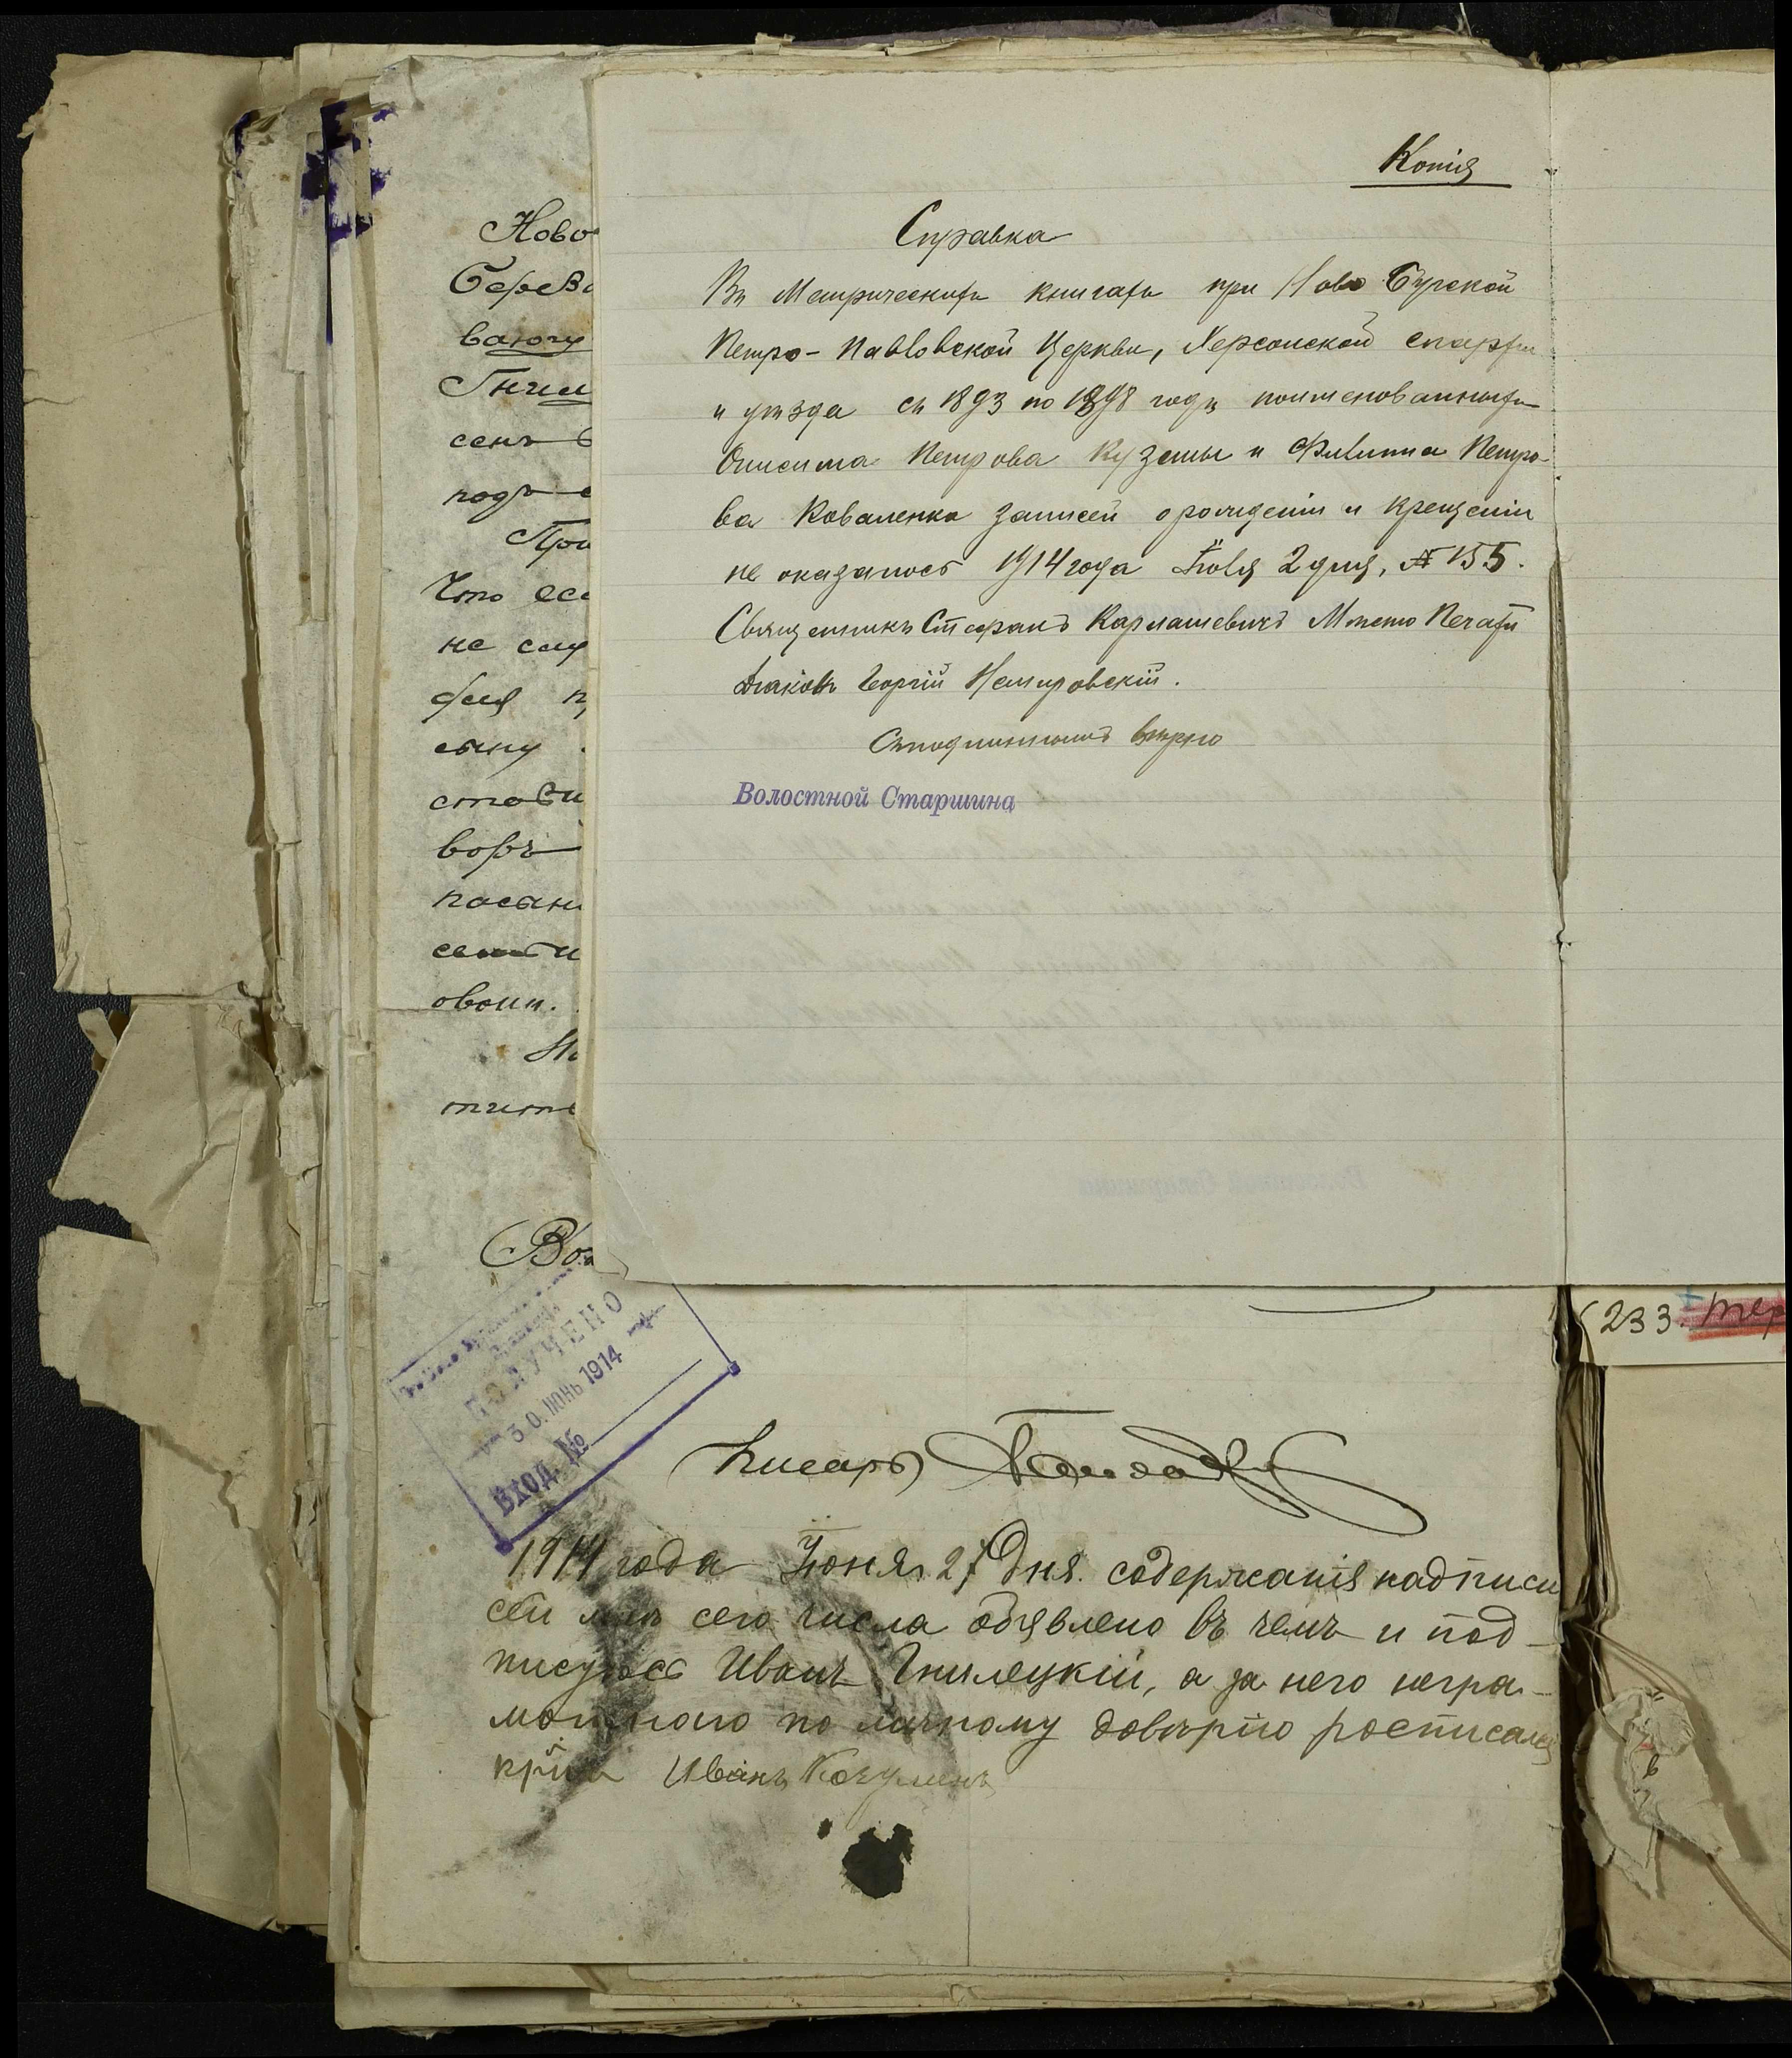 Копія
Справка
Въ Метрическихъ книгахъ при Ново Бугской
Петро-Павловской Церкви, Херсонской епархіи
и уѣзда съ 1893 по 1898 годъ поименованныхъ
Онисима Петрова Кузьмы и Филиппа Петро-
ва Коваленко записей о рожденіи и крещеніи
не оказалось 1914 года Іюля 2 дня, № 155.
Священникъ Стефанъ Карпашевичъ Мѣсто Печати
Діаконъ Георгій Немировскій.
Съ подлиннымъ вѣрно
Волостной Старшина
Ново
Берез
ваючу
Гнил
сенъ
подъ
При
Что
не
для
сыну
воръ
овоми.
Во
ПОЛУЧЕНО
30. ІЮНЬ 1914
Вход. №
Писарь
1914 года Іюня 27 Дня. содержанія надписи
сей мнѣ сего числа объявлено въ чемъ и под-
писуюсь Иванъ Гнилецкій, а за него негра-
мотного по личному довѣрію росписался
кр-нъ Иванъ
233.
6